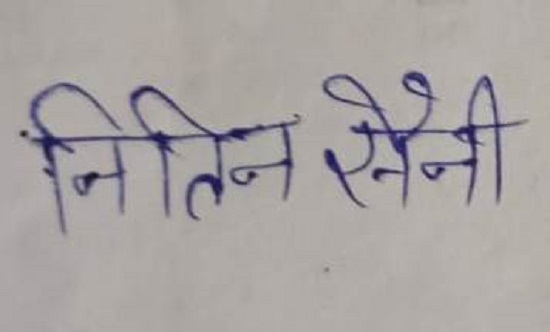 नितिन सैनी